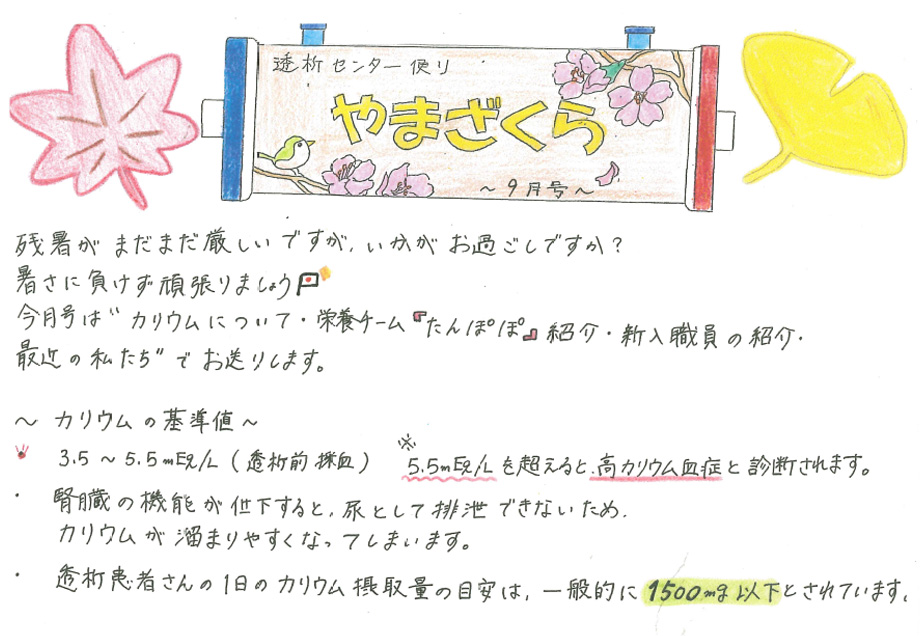 透析センター便り
やまざくら
～9月号～
残暑がまだまだ厳しいですが、いかがお過ごしですか？
暑さに負けず頑張りましょう
今月号は“カリウムについて・栄養チーム『たんぽぽ』紹介・新入職員の紹介・
最近の私たち”でお送りします。
～カリウムの基準値～
3.5～5.5mEq/L（透析前採血） ※5.5mEq/Lを超えると、高カリウム血症と診断されます。
・腎臓の機能が低下すると、尿として排泄できないため、
カリウムが溜まりやすくなってしまいます。
・透析患者さんの1日のカリウム摂取量の目安は、一般的に1500mg以下とされています。